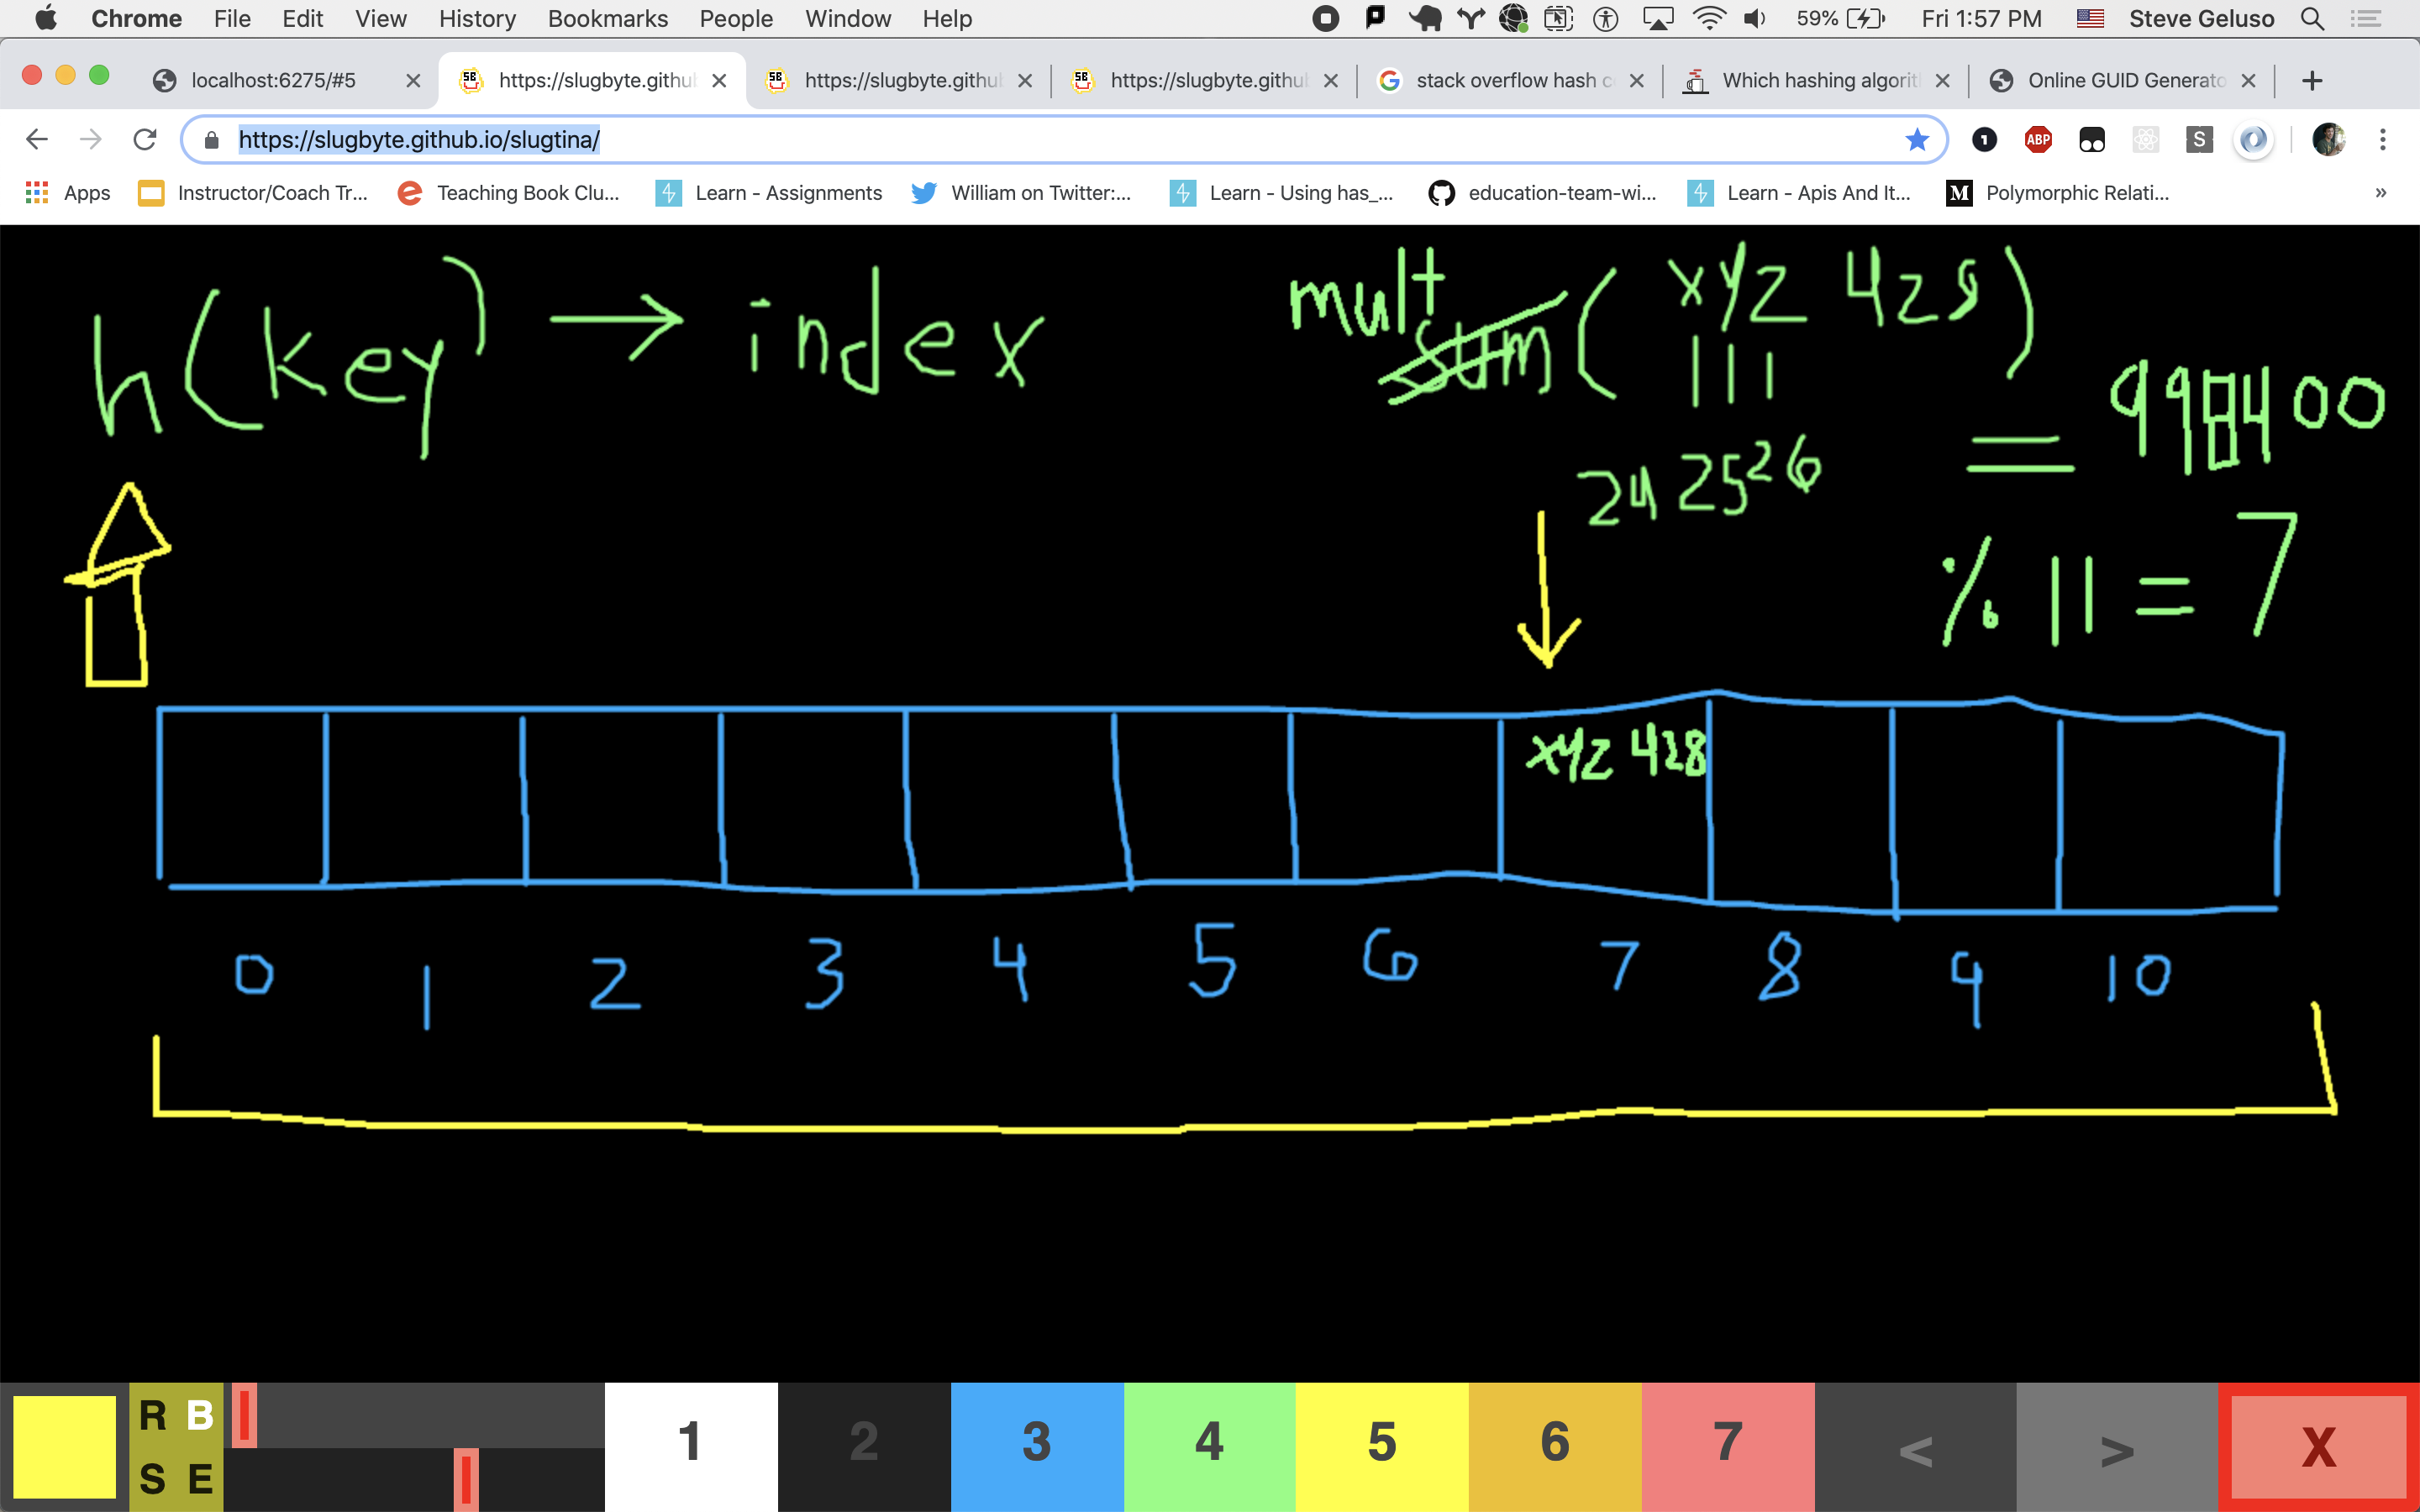 Chrome File Edit View History Bookmarks People Window Help 59% Fri 1:57 PM Steve Geluso
localhost:6275/#5 https://slugbyte.githu https://slugbyte.githu https://slugbyte.githu stack overflow hash c Which hashing algorit Online GUID Generato
https://slugbyte.github.io/slugtina/ 1 ABP S
Apps Instructor/Coach Tr... Teaching Book Clu... Learn - Assignments William on Twitter:... Learn - Using has_... education-team-wi... Learn - Apis And It... M Polymorphic Relati... »
h(key) → index mult sum(xyz 428)
24 25 26 = 998400
% 11 = 7
xyz 428
0 1 2 3 4 5 6 7 8 9 10
R B
S E
1 2 3 4 5 6 7 < > X